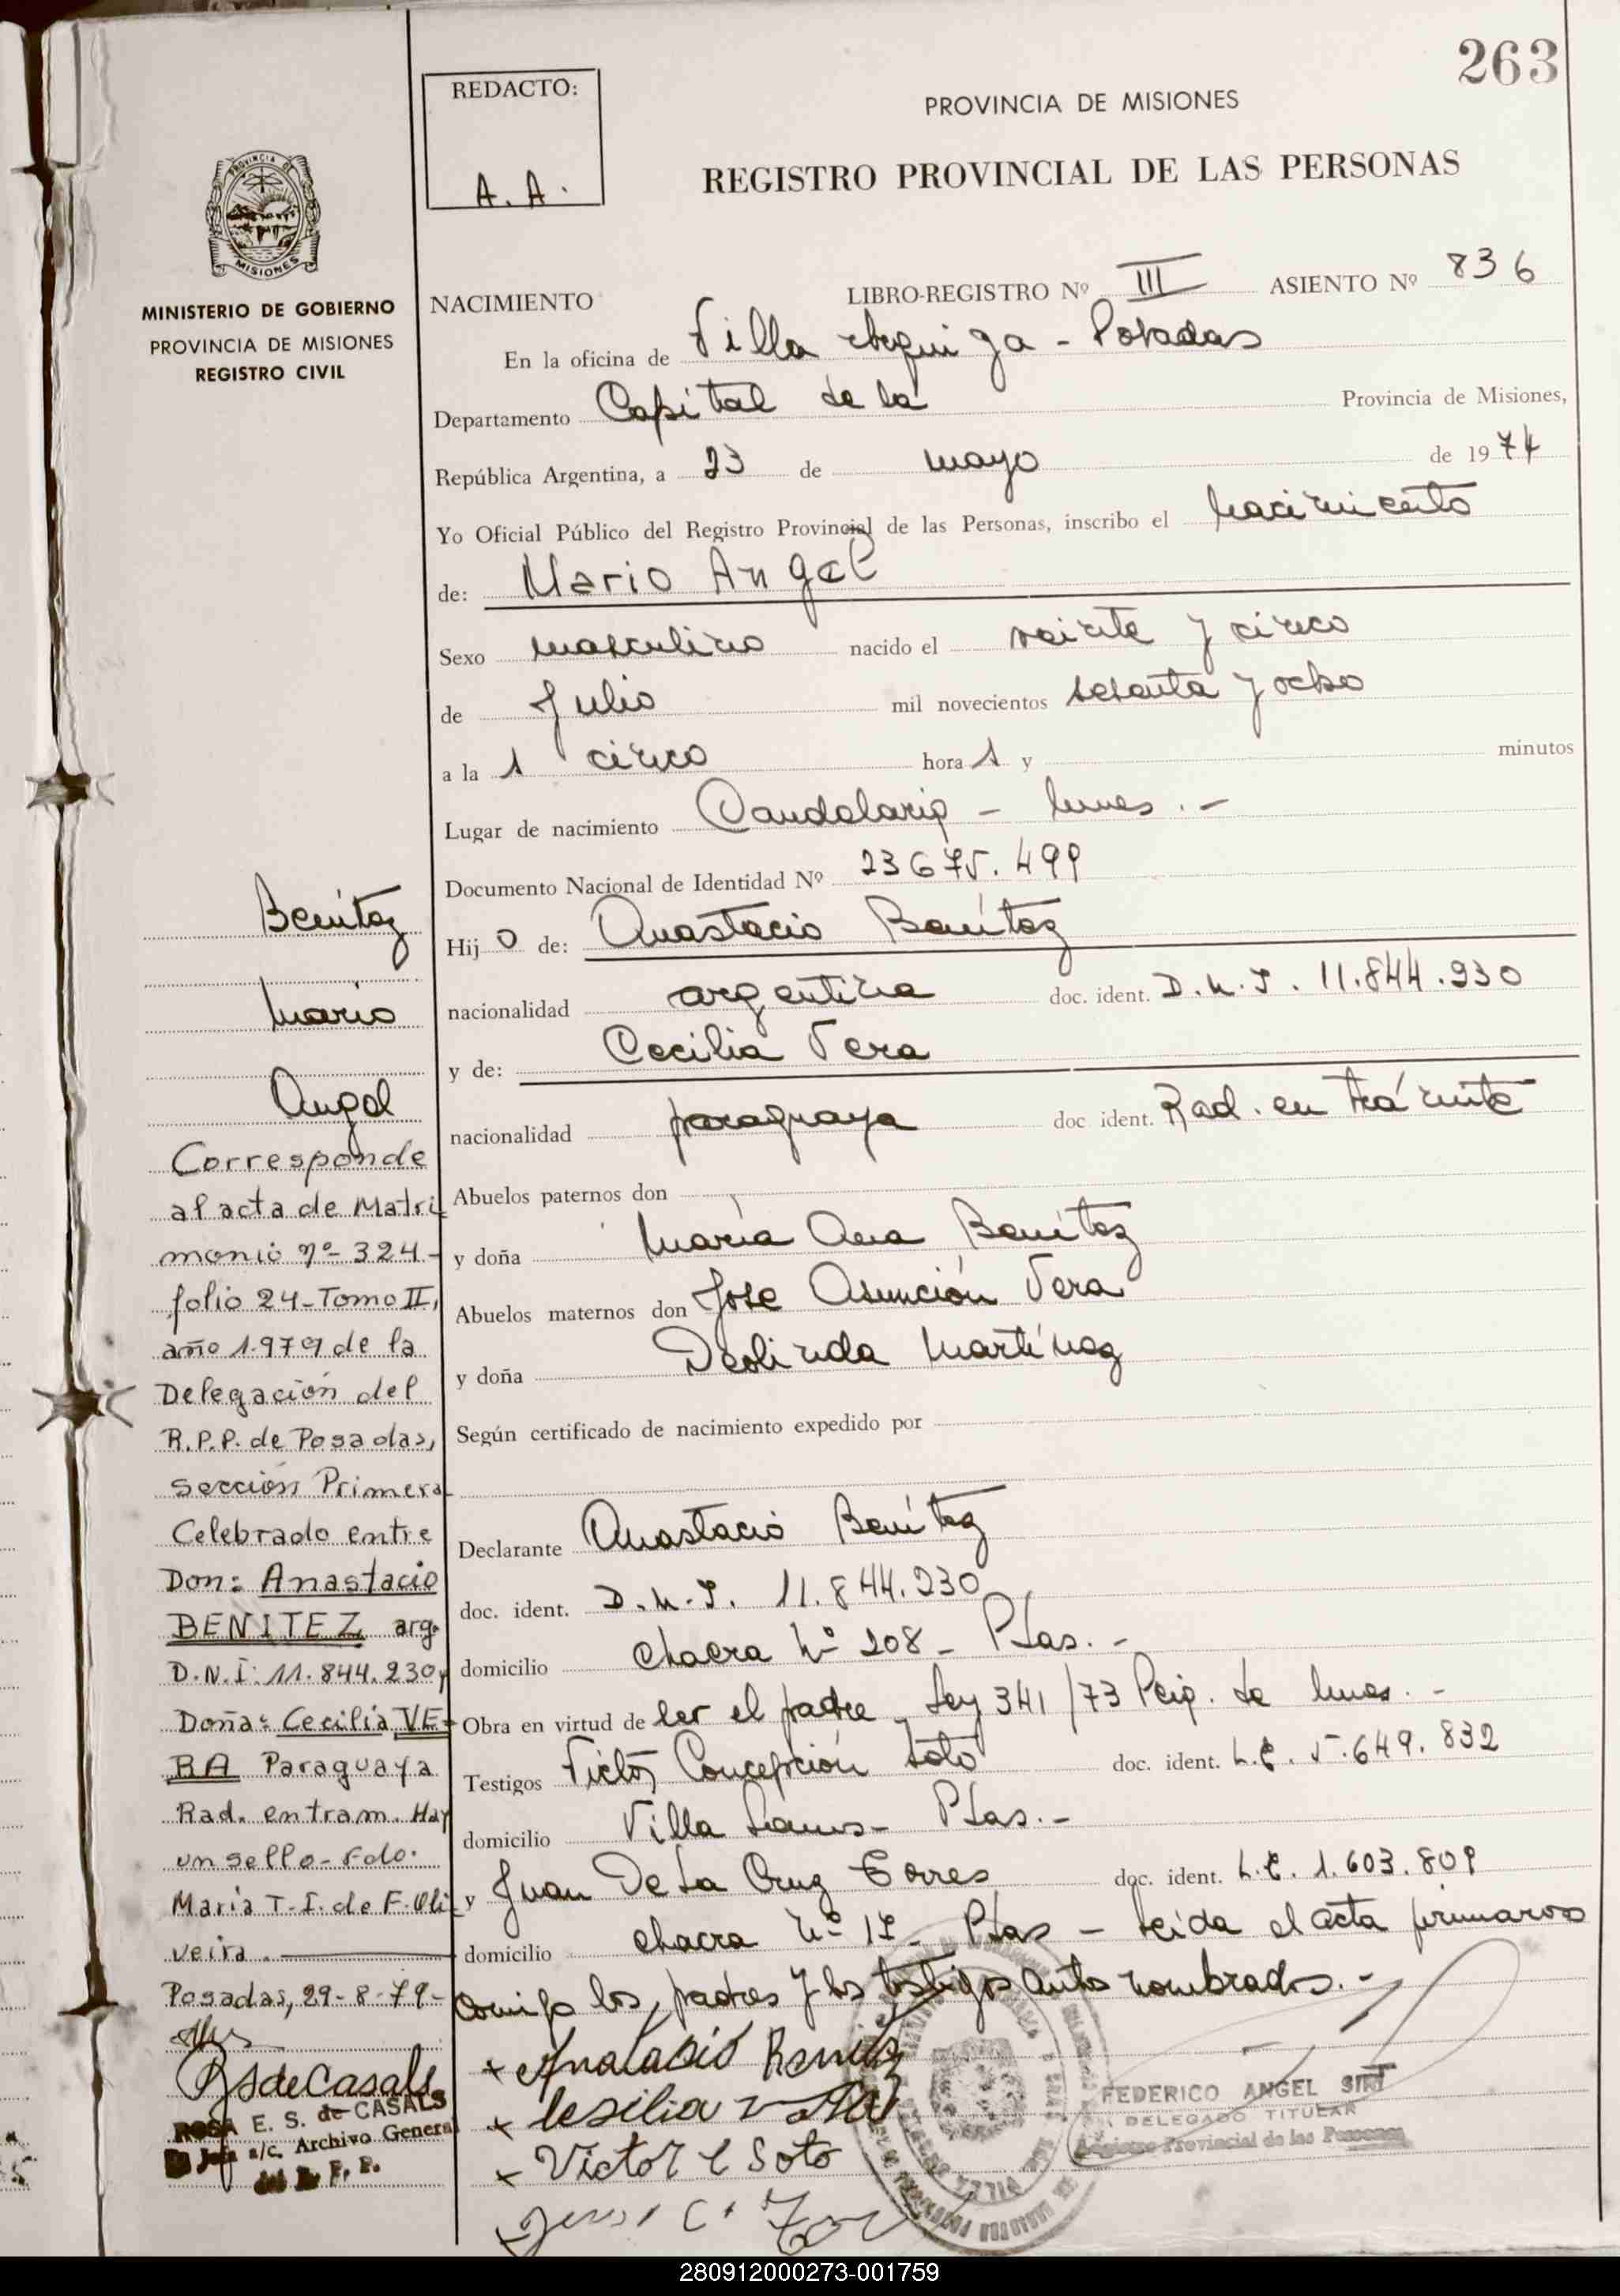 263
REDACTO:
A. A.
PROVINCIA DE MISIONES
REGISTRO PROVINCIAL DE LAS PERSONAS
PROVINCIA DE
MISIONES
MINISTERIO DE GOBIERNO
PROVINCIA DE MISIONES
REGISTRO CIVIL
NACIMIENTO LIBRO-REGISTRO Nº III ASIENTO Nº 836
En la oficina de Villa Urquiza - Posadas
Departamento Capital de la Provincia de Misiones,
República Argentina, a 23 de mayo de 1974
Yo Oficial Público del Registro Provincial de las Personas, inscribo el Nacimiento
de: Mario Angel
Sexo masculino nacido el veinte y cinco
de Julio mil novecientos sesenta y ocho
a la s cinco hora s y minutos
Lugar de nacimiento Candelaria - Mnes. -
Documento Nacional de Identidad Nº 23675.499
Hij o de: Anastacio Benítez
nacionalidad argentina doc. ident. D.N.I. 11.844.230
y de: Cecilia Vera
nacionalidad paraguaya doc ident. Rad. en trámite
Abuelos paternos don
y doña María Ana Benítez
Abuelos maternos don José Asunción Vera
y doña Deolinda Martínez
Según certificado de nacimiento expedido por
Declarante Anastacio Benítez
doc. ident. D.N.I. 11.844.230
domicilio chacra Nº 208 - Pdas. -
Obra en virtud de ser el padre - Ley 341/73 Pcia. de Mnes. -
Testigos Victor Concepción Soto doc. ident. L.E. 5.649.832
domicilio Villa - Pdas. -
y Juan De La Cruz Torres doc. ident. L.E. 1.603.809
domicilio chacra Nº - Pdas - leída el acta firmaron
conmigo los padres y los testigos antes nombrados. -
Benítez
Mario
Angel
Corresponde
al acta de Matri
monio Nº 324 -
folio 24 - Tomo II,
año 1.979 de la
Delegación del
R.P.P. de Posadas,
sección Primera
Celebrado entre
Don: Anastacio
BENITEZ arg.
D.N.I: 11.844.230 y
Doña: Cecilia VE-
RA Paraguaya
Rad. en tram. Hay
un sello - Fdo.
María T. I. de F. Oli
veira.
Posadas, 29-8-79-
RSdeCasals
ROSA E. S. de CASALS
Jefa a/c. Archivo General
del R. P. P.
x Anastacio Benitez
x
x Victor C Soto
x
FEDERICO ANGEL
DELEGADO TITULAR
Registro Provincial de las Personas
280912000273-001759